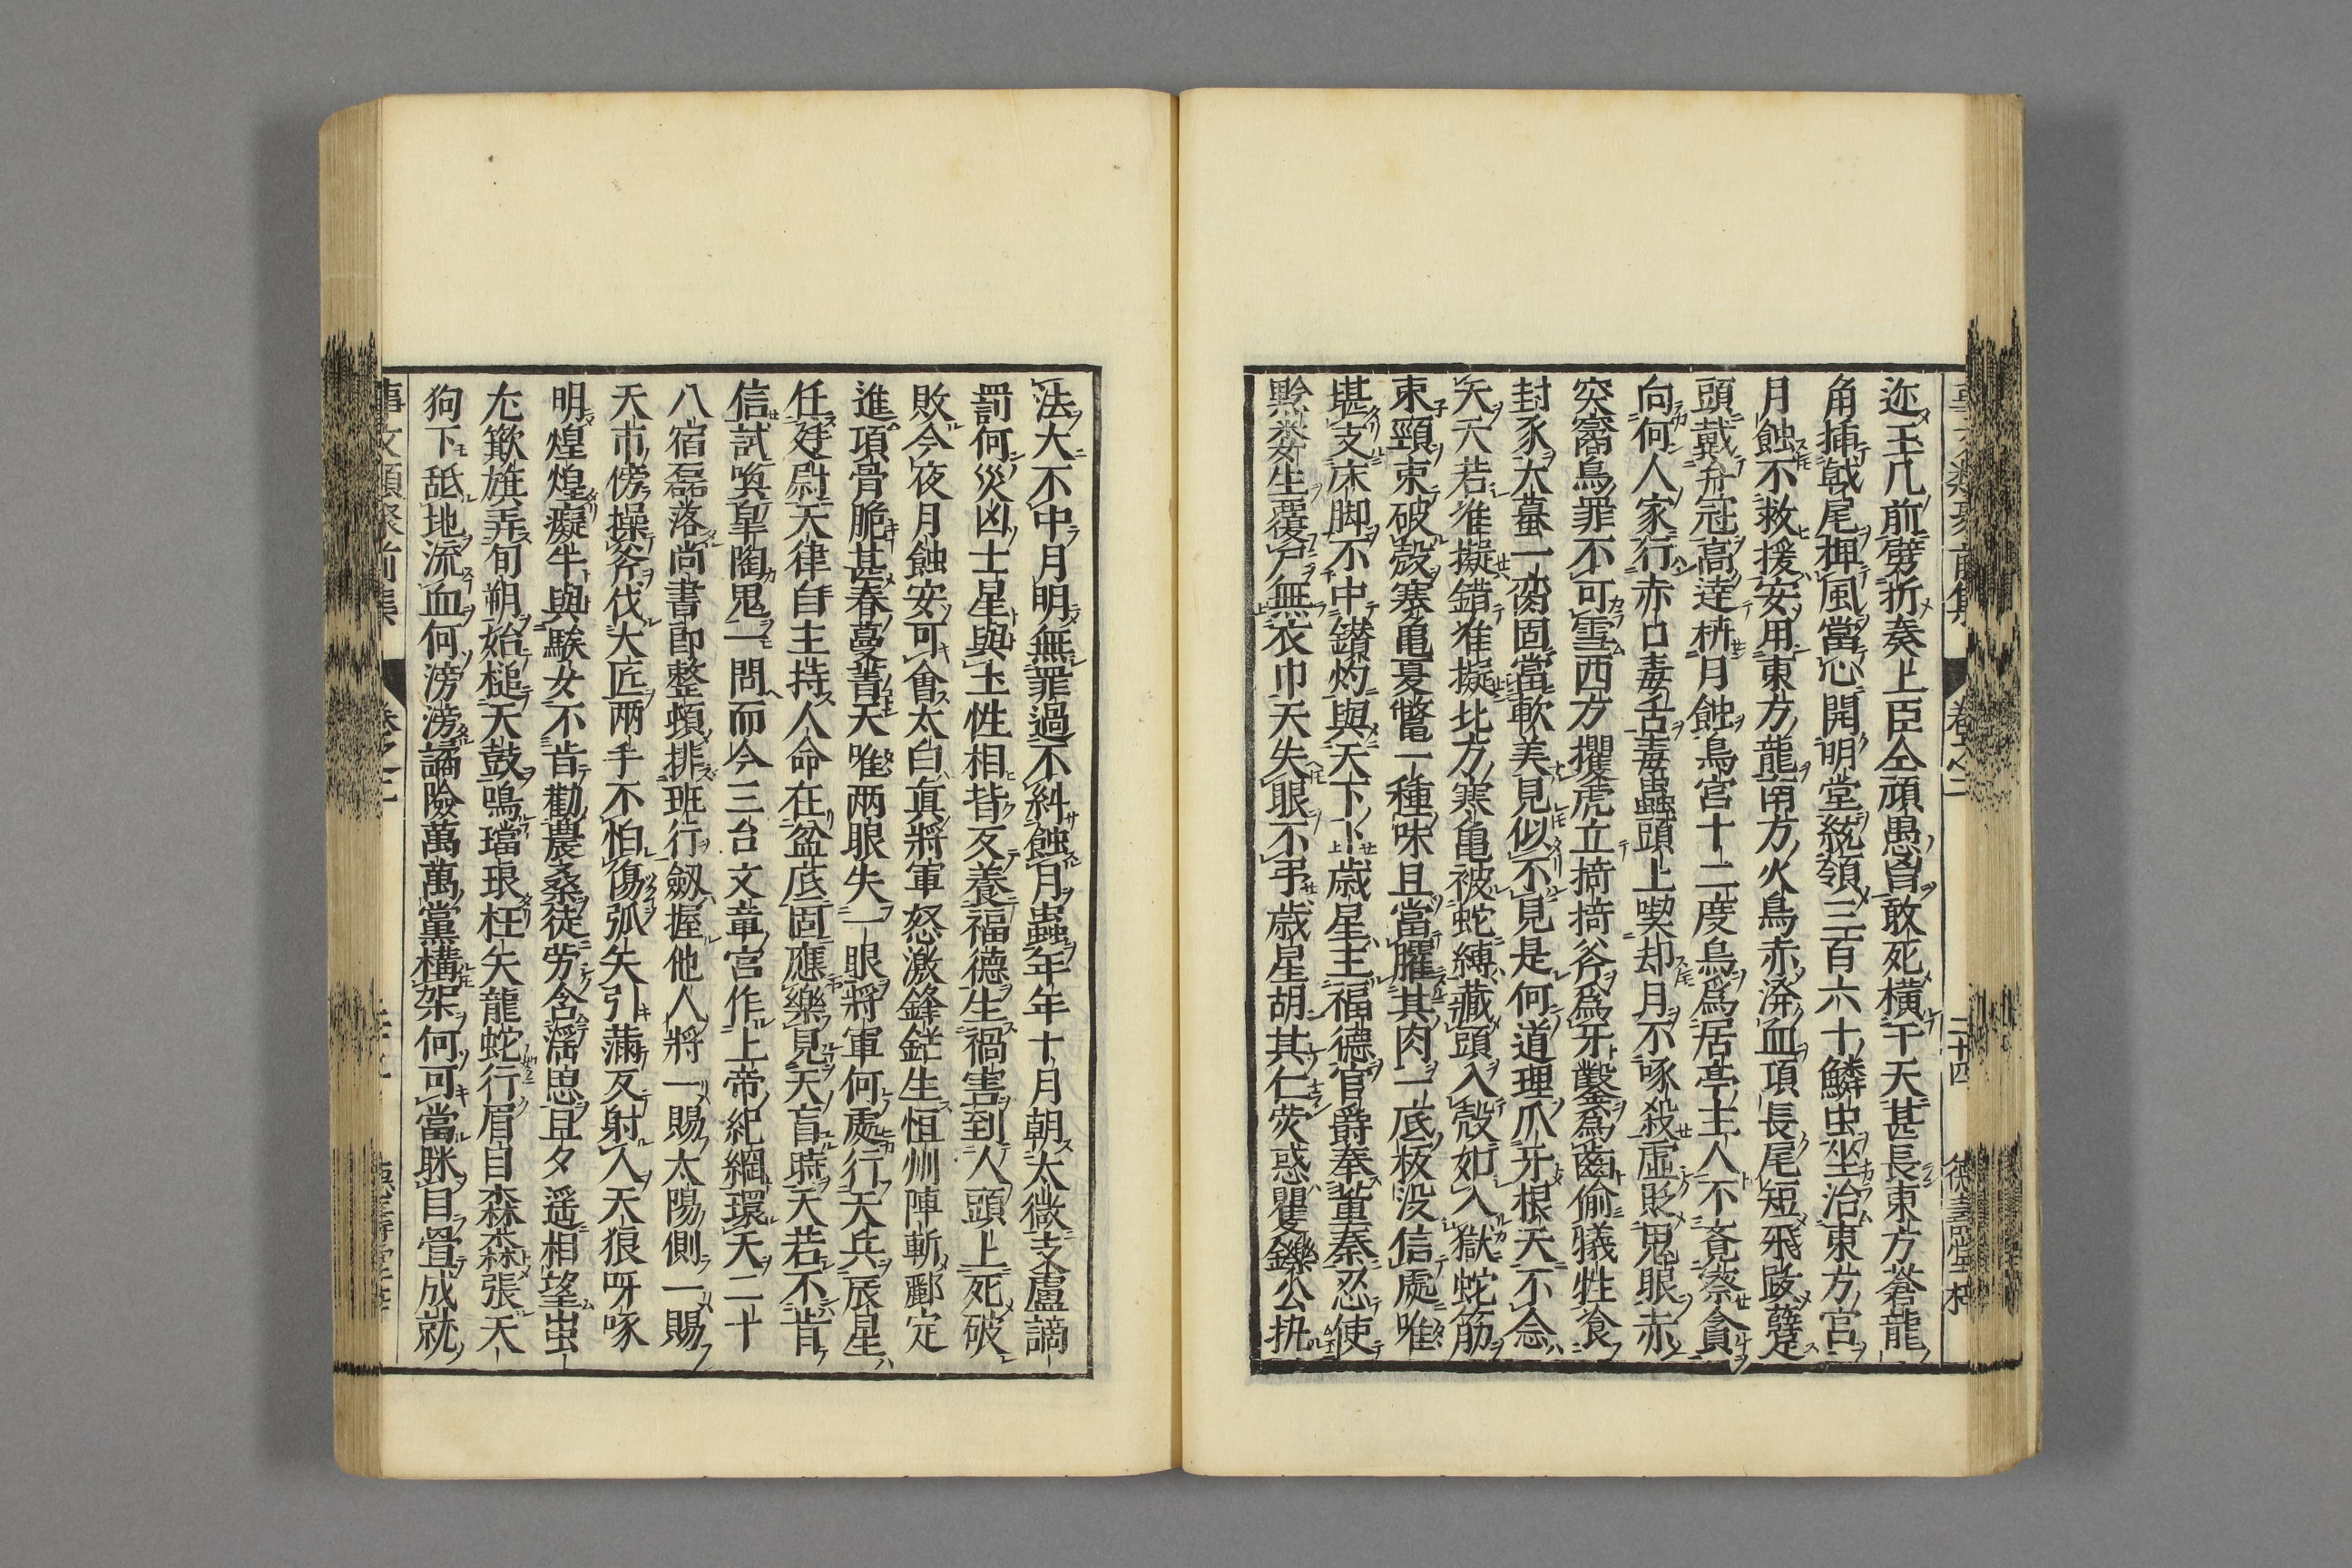 迩玉几前劈折奏上臣仝頑愚胷敢死橫干天甚長東方蒼龍
角揷戟尾捭風當心開明堂統領三百六十鱗虫坐治東方宮
月蝕不救援安用東方龍南方火鳥赤潑血項長尾短飛跋躠
頭戴弁冠高逹枿月蝕鳥宮十二度鳥爲居亭主人不覔察貪
向何人家行赤口毒舌毒蟲頭上喫却月不啄殺虛貶鬼眼赤
突䆨鳥罪不可雪西方攫虎立掎掎斧爲牙鑿爲齒偷犧牲飡
封豕大蟇一臠固當軟美見似不見是何道理爪牙根天不念
天天若准擬錯准擬北方寒亀被蛇縛藏頭入殼如入獄蛇筋
束頸束破殼寒亀夏鼈一種味且當臛其肉一底板沒信處唯
堪支床脚不中鑚灼與天下卜歳星主福德官爵奉董秦忍使
黔婁生覆尸無衣巾天失眼不弔歳星胡其仁熒惑矍鑠公执
法大不中月明無罪過不糾蝕月蟲年年十月朝太微支盧謫
罰何災凶土星與土性相背反養福德生禍害到人頭上死破
敗今夜月蝕安可會太白眞將軍怒激鋒鋩生恒州陣斬酈定
進項骨脆甚春蔓菁天唯两眼失一眼將軍何處行天兵辰星
任廷尉天律自主持人命在盆底固應樂見天盲時天若不肯
信試喚皇陶鬼一問而今三台文章宮作上帝紀綱環天二十
八宿磊落尚書郎整頓排班行劒握他人將一賜太陽側一賜
天市傍操斧伐大匠两手不怕傷弧矢引滿反射人天狼呀啄
明煌煌癡牛與騃女不肯勸農桑徒労含滛思旦夕遥相望虫
尤歗旗弄旬朔始槌天鼓鳴璫琅枉矢龍蛇行眉目森森張天
狗下舐地流血何滂滂譎險萬萬黨構架何可當眯目舋成就
卷之二
二十四